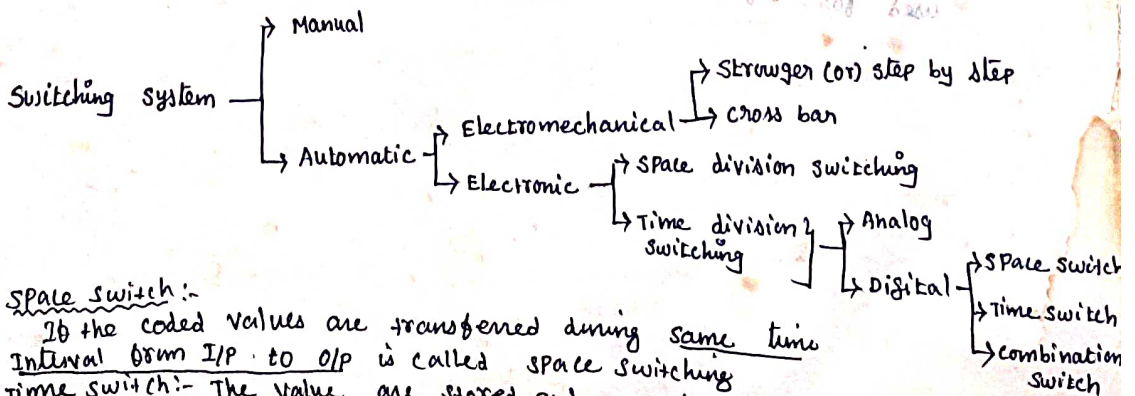 Manual
Switching system
Automatic
Electromechanical
Strowger (or) step by step
cross bar
Electronic
Space division switching
Time division
switching
Analog
Digital
Space switch
Time switch
combination
switch
Space switch:-
If the coded values are transferred during same time
Interval from I/P to O/P is called space switching
Time switch:- The value are stored